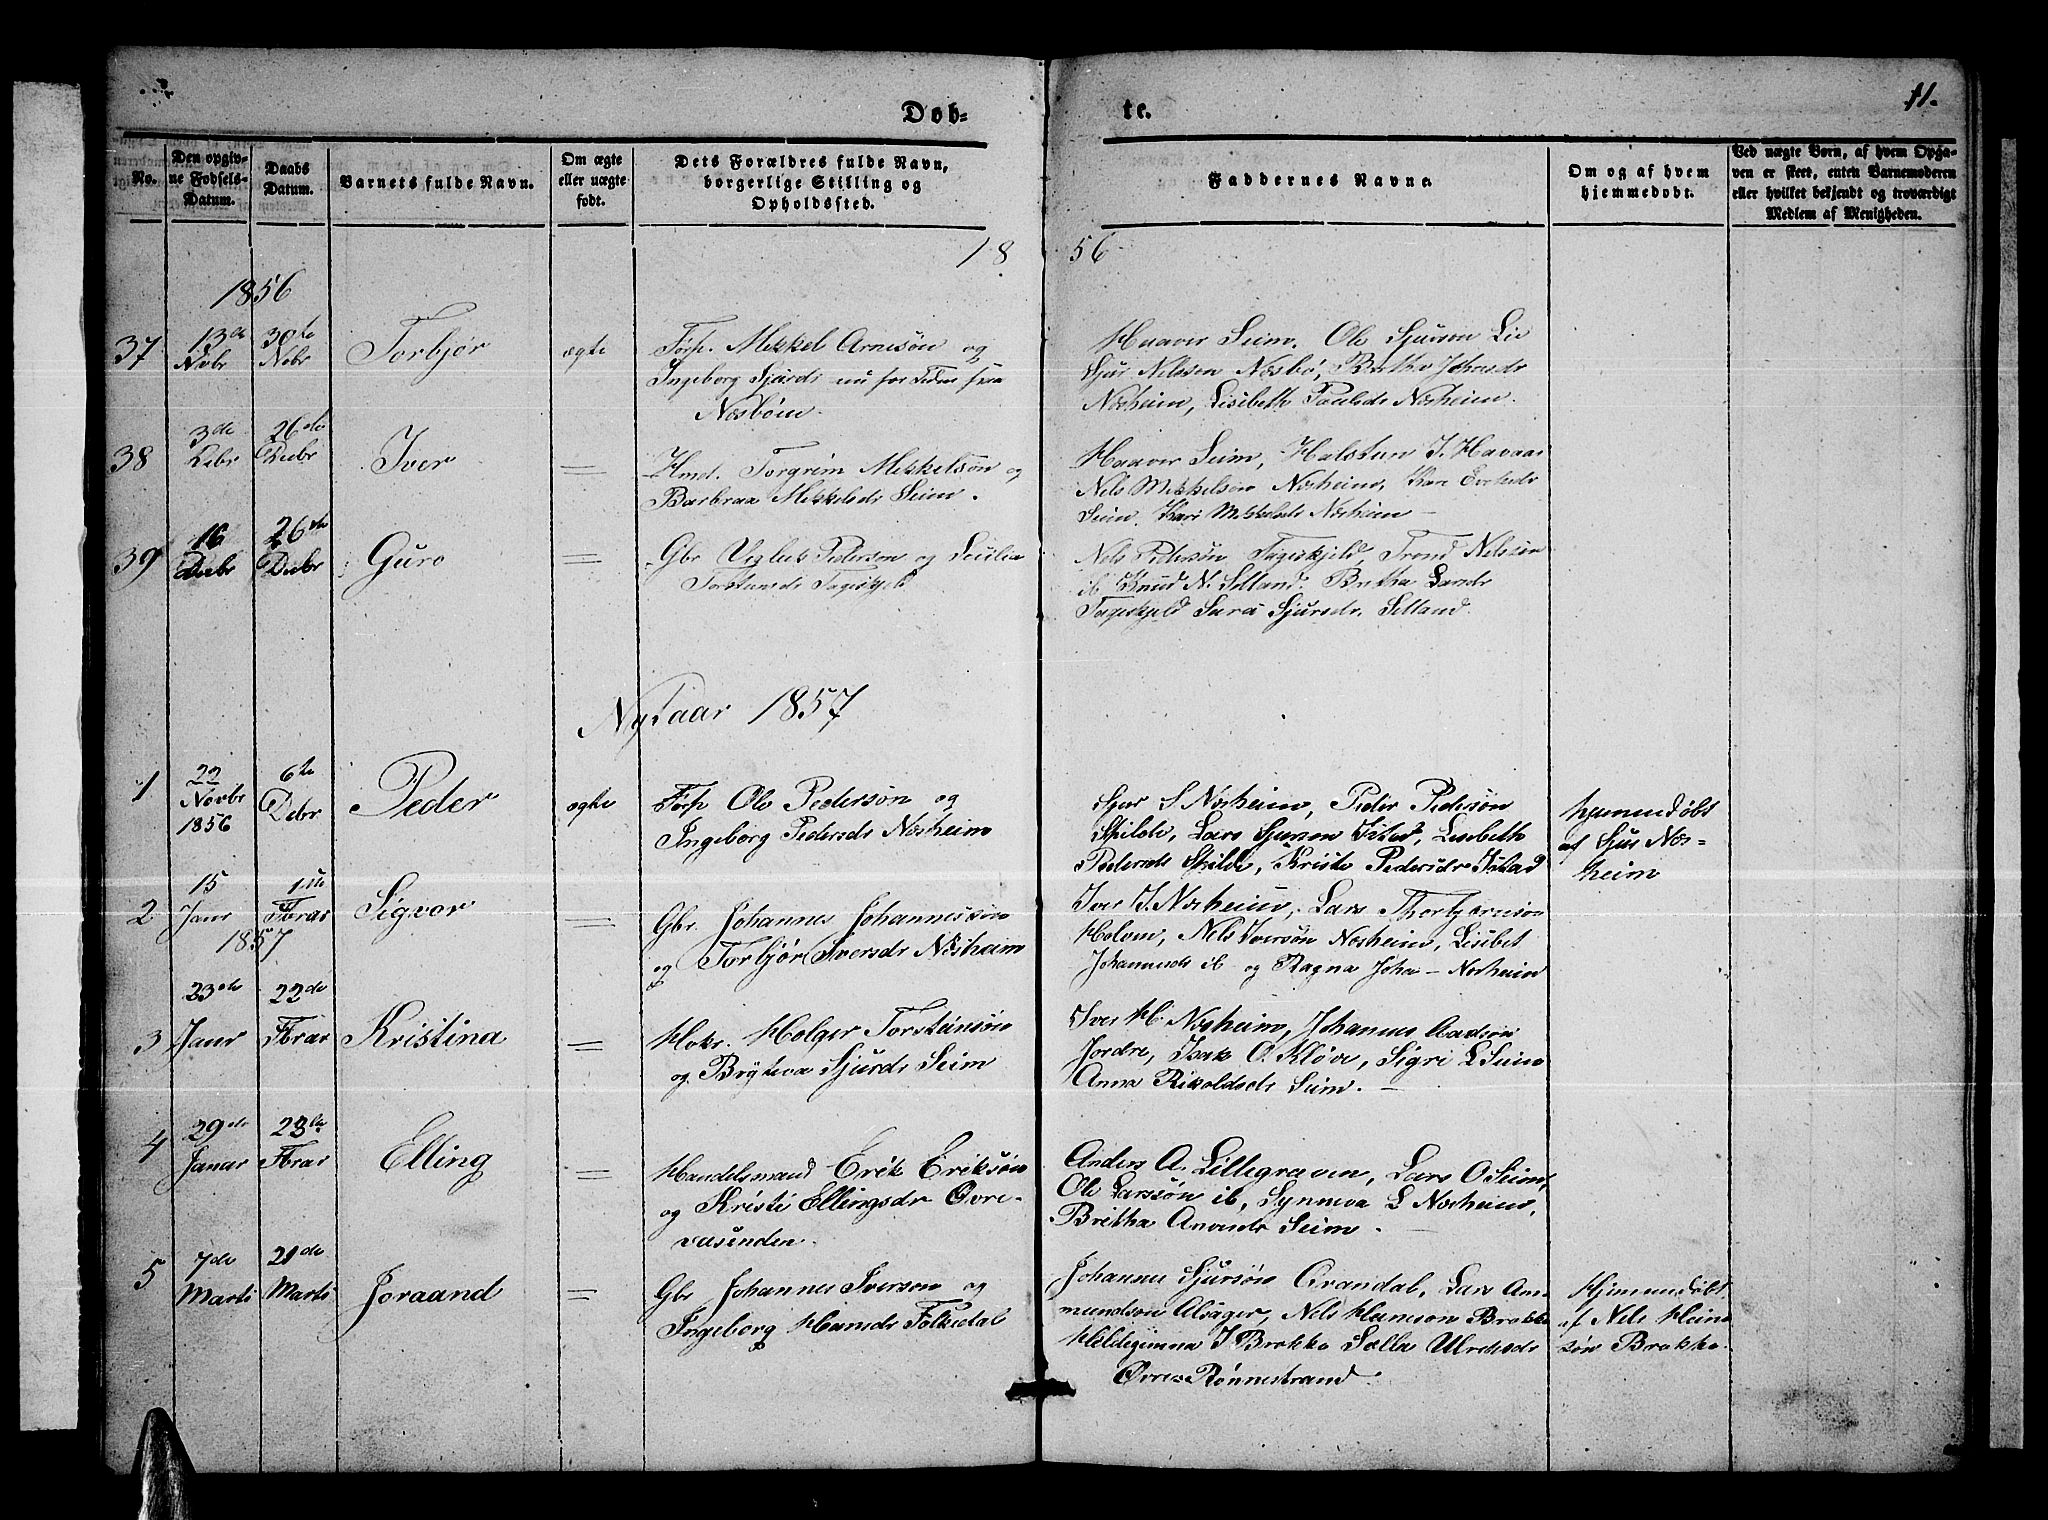 Døb-
te.
11.
No.
Den opgiv-
ne Fødsels-
Datum.
Daabs
Datum.
Barnets fulde Navn.
Om ægte
eller uægte
født.
Dets Forældres fulde Navn,
borgerlige Stilling og
Opholdssted.
Faddernes Navne.
Om og af hvem
hjemmedøbt.
Ved uægte Børn, af hvem Opga-
ven er skeet, enten Barnemoderen
eller hvilket bekjendt og troværdigt
Medlem af Menigheden.
18
56
1856
37
13de
Nvbr
30te
Nvbr
Torbjør
ægte
Førp. Mikkel Arnesøn og
Ingeborg Sjurdr nu for Tiden fra
Næsbøm.
Haaver Seim. Ole Sjurson Lie
Sjur Nilssen Næsbø, Britha Johansdr
Næsheim, Lisibeth Paulsdr Næsheim.
38
3de
Debr
26de
Debr
Iver
=
Hmd. Torgrim Mikkelsøn og
Barbraa Mikkelsdr Seim.
Haaver Seim, Halsten I. Havaas
Nels Mikkelsøn Næsheim, Kari
Seim. Kari Mikkelsdr Næsheim —
39
16
Debr
26de
Debr
Guro
=
Gbr Viglek Pederson og
Torsteinsdr
Nels Pedersøn Trond Nelsøn
ib Knud N. Selland. Britha Larsdr
Sara Sjursdr. Selland.
Nytaar 1857
1
22
Novbr
1856
6te
Debr
Peder
ægte
Førp Ole Pedersøn og
Ingeborg Pedersdr Næsheim
Sjur S Næsheim, Peder Pedersøn
Skilde, Lars Sjurson Istad, Lisibeth
Pedersdr Skilde, Kristi Pedersdr Istad
hjemmedøbt
af Sjur Næs-
heim
2
15
Janr
1857
1ste
Fbrar
Sigvor
=
Gbr. Johannes Johannessøn
og Torbjør Iversdr Næsheim
Iver I. Næsheim, Lars Thorbjørnsøn
Holven, Nels Iversøn Næsheim, Lisibet
Johannesdr ib og Ragna Joha— Næsheim
3
23de
Janr
22de
Fbrar
Kristina
=
Holger Torsteinsøn
og Bryteva Sjurdr Seim
Iver H. Næsheim, Johannes
Jordre, Isak O. Kløve, Sigri L Seim
Anna Rikoldsdr Seim. —
4
29de
Janar
Fbrar
Elling
=
Handelsmand Erik Eriksøn
og Kristi Ellingsdr Øvre-
vasenden.
Anders A. Lillegraven, Lars O Seim,
Ole Larssøn ib, Synneva L Næsheim,
Britha Seim —
5
7de
Marts
21de
Marts
Joraand
=
Gbr Johannes Iverson og
Ingeborg Hansdr Folkedal
Johannes Sjursøn Grandal, Lars Am-
mundson Alsager, Nels Heineson Brakke
Hildegunna I Brakke Ulriksdr
Øvre Rønnestrand.
Hjemmedøbt
af Nels Hein
søn Brakke.